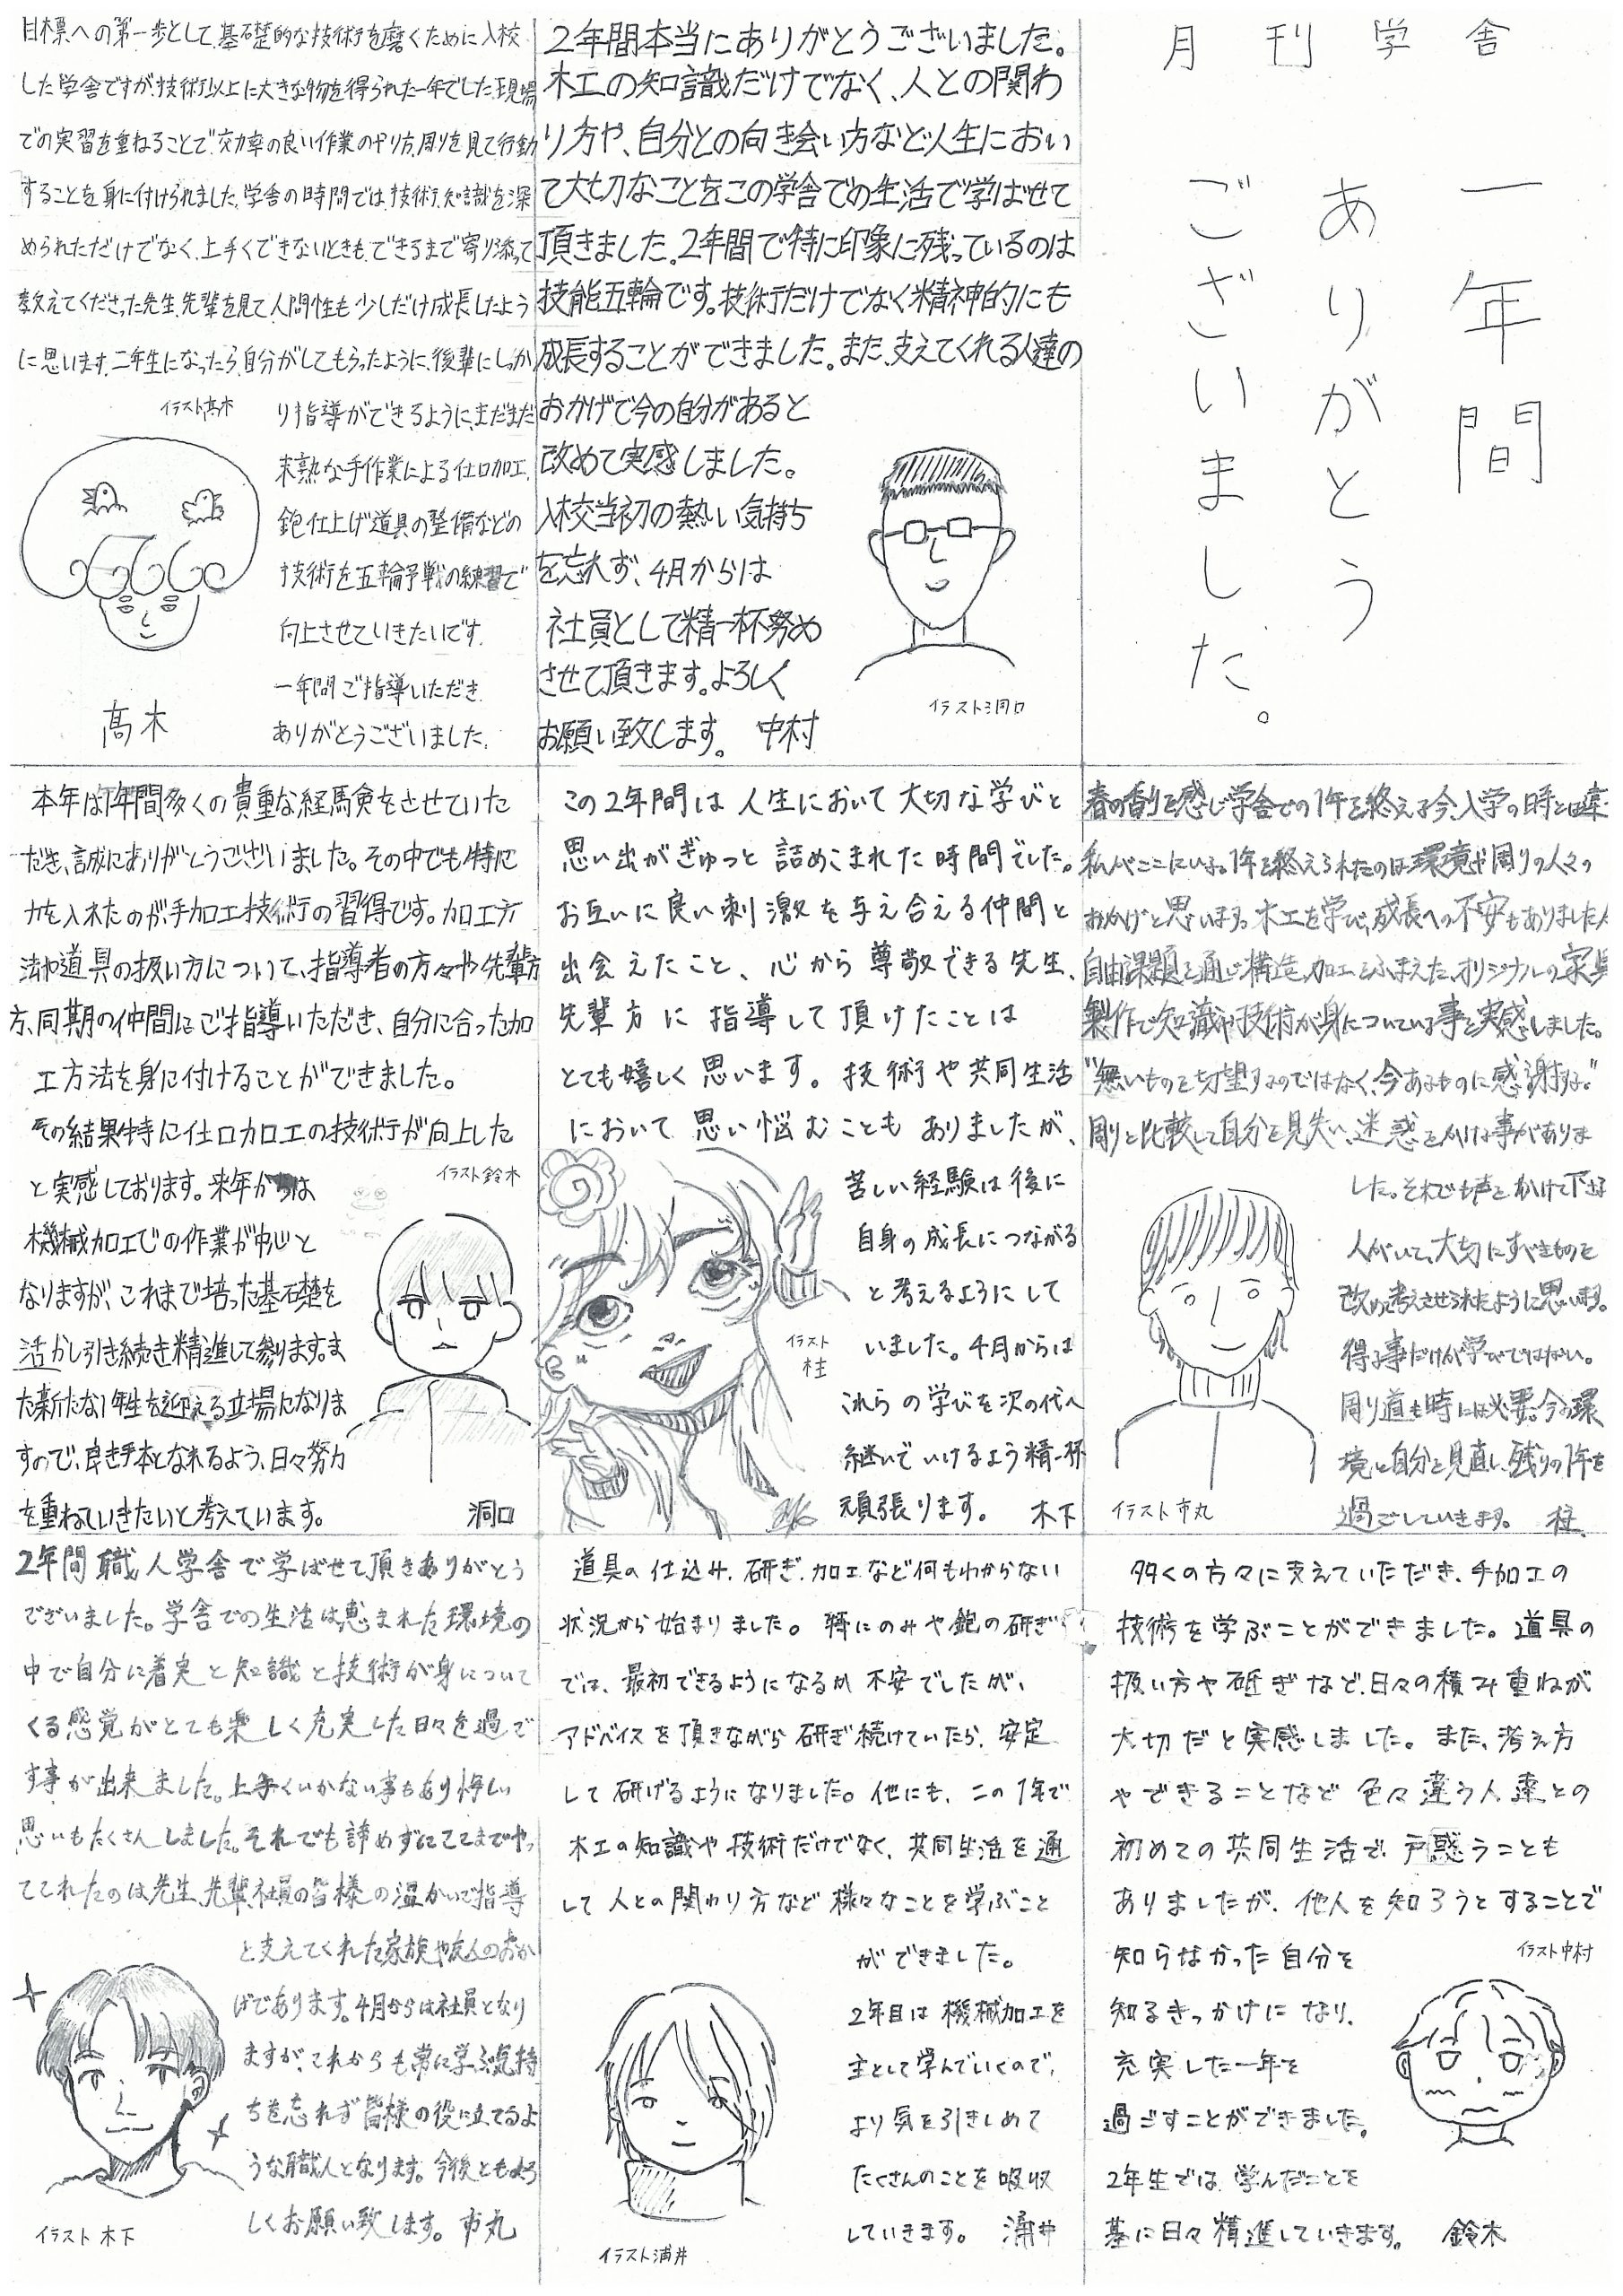 月刊学舎
一年間
ありがとう
ございました。
2年間本当にありがとうございました。
木工の知識だけでなく、人との関わ
り方や、自分との向き会い方など人生におい
て大切なことをこの学舎での生活で学ばせて
頂きました。2年間で特に印象に残っているのは
技能五輪です。技術だけでなく精神的にも
成長することができました。また、支えてくれる人達の
おかげで今の自分があると
改めて実感しました。
入校当初の熱い気持ち
を忘れず、4月からは
社員として精一杯努め
させて頂きます。よろしく
お願い致します。 中村
イラスト洞口
目標への第一歩として、基礎的な技術を磨くために入校
した学舎ですが、技術以上に大きな物を得られた一年でした。現場
での実習を重ねることで、効率の良い作業のやり方、周りを見て行動
することを身に付けられました。学舎の時間では、技術、知識を深
められただけでなく、上手くできないときも、できるまで寄り添って
教えてくださった先生、先輩を見て、人間性も少しだけ成長したよう
に思います。二年生になったら、自分がしてもらったように、後輩にしっか
り指導ができるように、まだまだ
未熟な手作業による仕口加工、
鉋仕上げ、道具の整備などの
技術を五輪予戦の練習で
向上させていきたいです。
一年間ご指導いただき、
ありがとうございました。
イラスト高木
髙木
春の香りを感じ学舎での1年を終える今、入学の時とは違った
私がここにいる。1年を終えられたのは環境や周りの人々の
おかげと思います。木工を学び、成長への不安もありましたが
自由課題を通じ構造、加工をふまえた、オリジナルの家具
製作で知識や技術が身についている事を実感しました。
"無いものを切望するのではなく、今あるものに感謝する。"
周りと比較して自分を見失い、迷惑をかける事がありま
した。それでも声をかけて下さる
人がいて、大切にすべきものを
改め考えさせられたように思います。
得る事だけが学びではない。
周り道も時には必要。今の環
境と自分を見直し、残りの1年を
過ごしていきます。 桂
イラスト市丸
この2年間は人生において大切な学びと
思い出がぎゅっと詰めこまれた時間でした。
お互いに良い刺激を与え合える仲間と
出会えたこと、心から尊敬できる先生、
先輩方に指導して頂けたことは
とても嬉しく思います。技術や共同生活
において思い悩むこともありましたが、
苦しい経験は後に
自身の成長につながる
と考えるようにして
いました。4月からは
これらの学びを次の代へ
継いでいけるよう精一杯
頑張ります。 木下
イラスト
桂
本年は1年間多くの貴重な経験をさせていた
だき、誠にありがとうございました。その中でも特に
力を入れたのが手加工技術の習得です。加工方
法や道具の扱い方について、指導者の方々や先輩方
方、同期の仲間にご指導いただき、自分に合った加
工方法を身に付けることができました。
その結果特に仕口加工の技術が向上した
と実感しております。来年からは
機械加工での作業が中心と
なりますが、これまで培った基礎を
活かし引き続き精進して参ります。ま
た新たな1年生を迎える立場になりま
すので、良き手本となれるよう、日々努力
を重ねていきたいと考えています。 洞口
イラスト鈴木
多くの方々に支えていただき、手加工の
技術を学ぶことができました。道具の
扱い方や砥ぎなど、日々の積み重ねが
大切だと実感しました。また、考え方
やできることなど色々違う人達との
初めての共同生活で戸惑うことも
ありましたが、他人を知ろうとすることで
知らなかった自分を
知るきっかけになり、
充実した一年を
過ごすことができました。
2年生では、学んだことを
基に日々精進していきます。 鈴木
イラスト中村
道具の仕込み、研ぎ、加工など何もわからない
状況から始まりました。特にのみや鉋の研ぎ
では、最初できるようになるか不安でしたが、
アドバイスを頂きながら研ぎ続けていたら、安定
して研げるようになりました。他にも、この1年で
木工の知識や技術だけでなく、共同生活を通
して人との関わり方など様々なことを学ぶこと
ができました。
2年目は機械加工を
主として学んでいくので、
より気を引きしめて
たくさんのことを吸収
していきます。 涌井
イラスト涌井
2年間職人学舎で学ばせて頂きありがとう
ございました。学舎での生活は恵まれた環境の
中で自分に着実と知識と技術が身について
くる感覚がとても楽しく充実した日々を過ご
す事が出来ました。上手くいかない事もあり悔しい
思いもたくさんしました。それでも諦めずにここまでやっ
てこれたのは先生、先輩、社員の皆様の温かいご指導
と支えてくれた家族や友人のおか
げであります。4月からは社員となり
ますが、これからも常に学ぶ気持
ちを忘れず皆様の役に立てるよ
うな職人となります。今後ともよろ
しくお願い致します。 市丸
イラスト木下